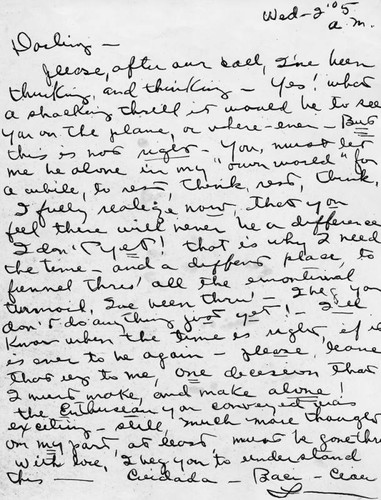 Wed-2'05
a.m.
Darling -
Please, after our call, I've been
thinking, and thinking - Yes! what
a shocking thrill it would be to see
you on the plane, or where-ever - But
this is not right - You, must let
me be alone in my "own world" for
a while, to rest, think, rest, think.
I fully realize now, that you
feel there will never be a difference
I don't yet! that is why I need
the time - and a different place, to
funnel thru' all the emotional
turmoil, I've been thru' - I beg you
don't do anything just yet! - I'll
know when the time is right, if it
is ever to be again - please, leave
that up to me, one decision that
I must make, and make alone!
the Enthusean you conveyed, was
exciting - still, much more thought
on my part, at least must be gone thru
With love, I beg you to understand
this - - Baci - Ciao